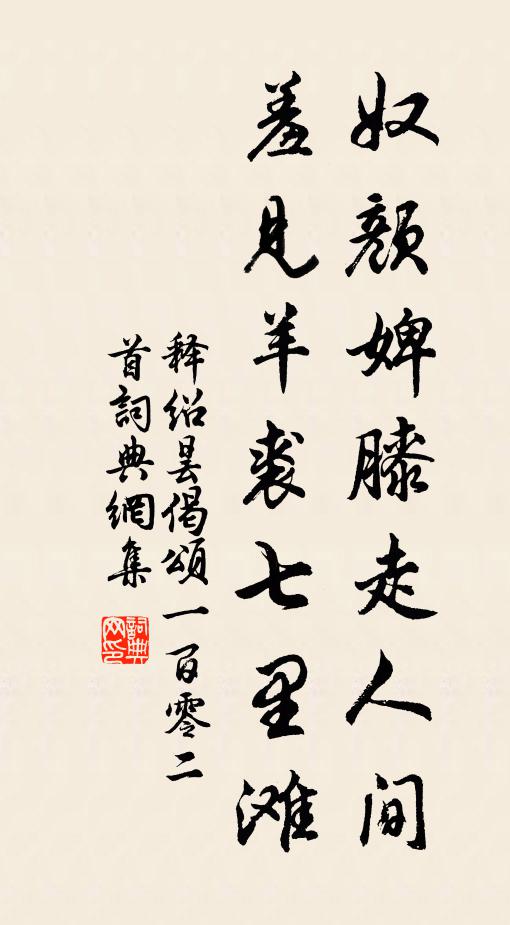 奴颜婢膝走人间
羞见羊裘七里滩
释绍昙偈颂一百零二
首詞典網集
詞典
网印